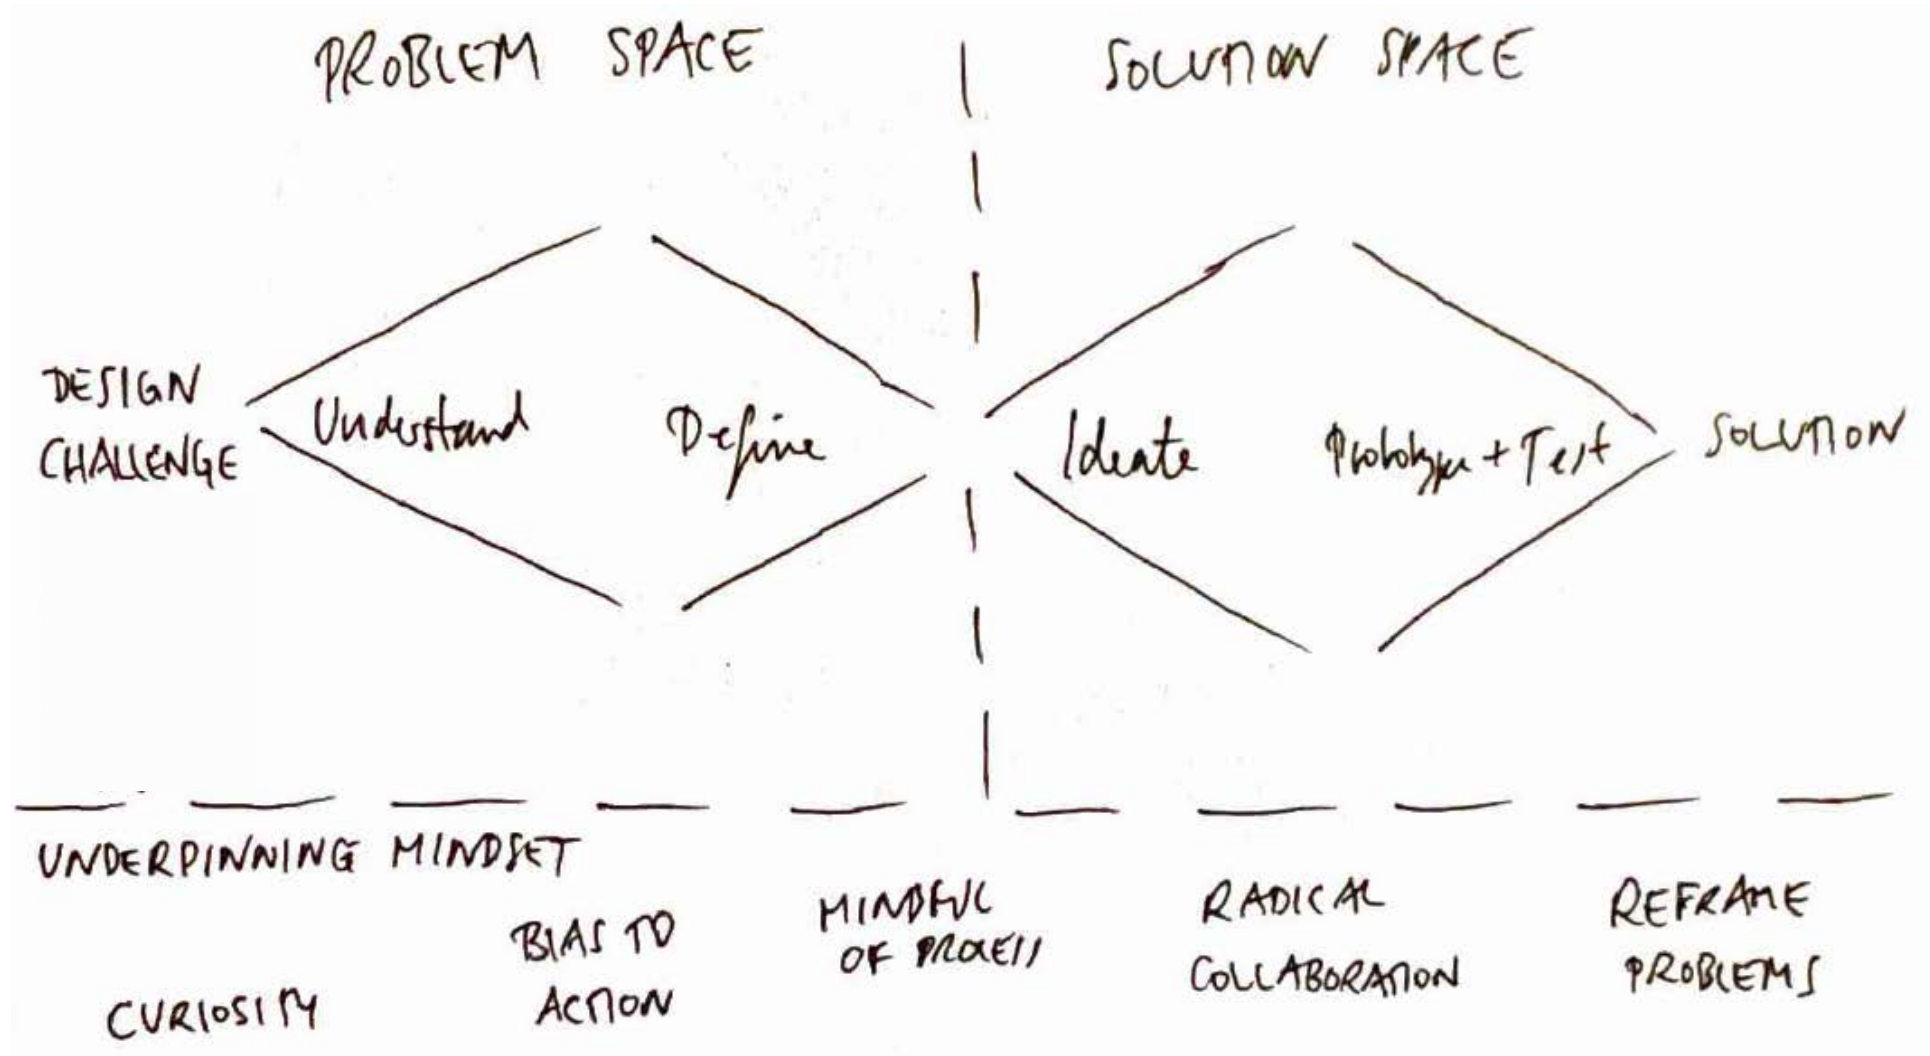 PROBLEM SPACE
SOLUTION SPACE
DESIGN
CHALLENGE
Understand
Define
Ideate
Prototype + Test
SOLUTION
UNDERPINNING MINDSET
CURIOSITY
BIAS TO
ACTION
MINDFUL
OF PROCESS
RADICAL
COLLABORATION
REFRAME
PROBLEMS